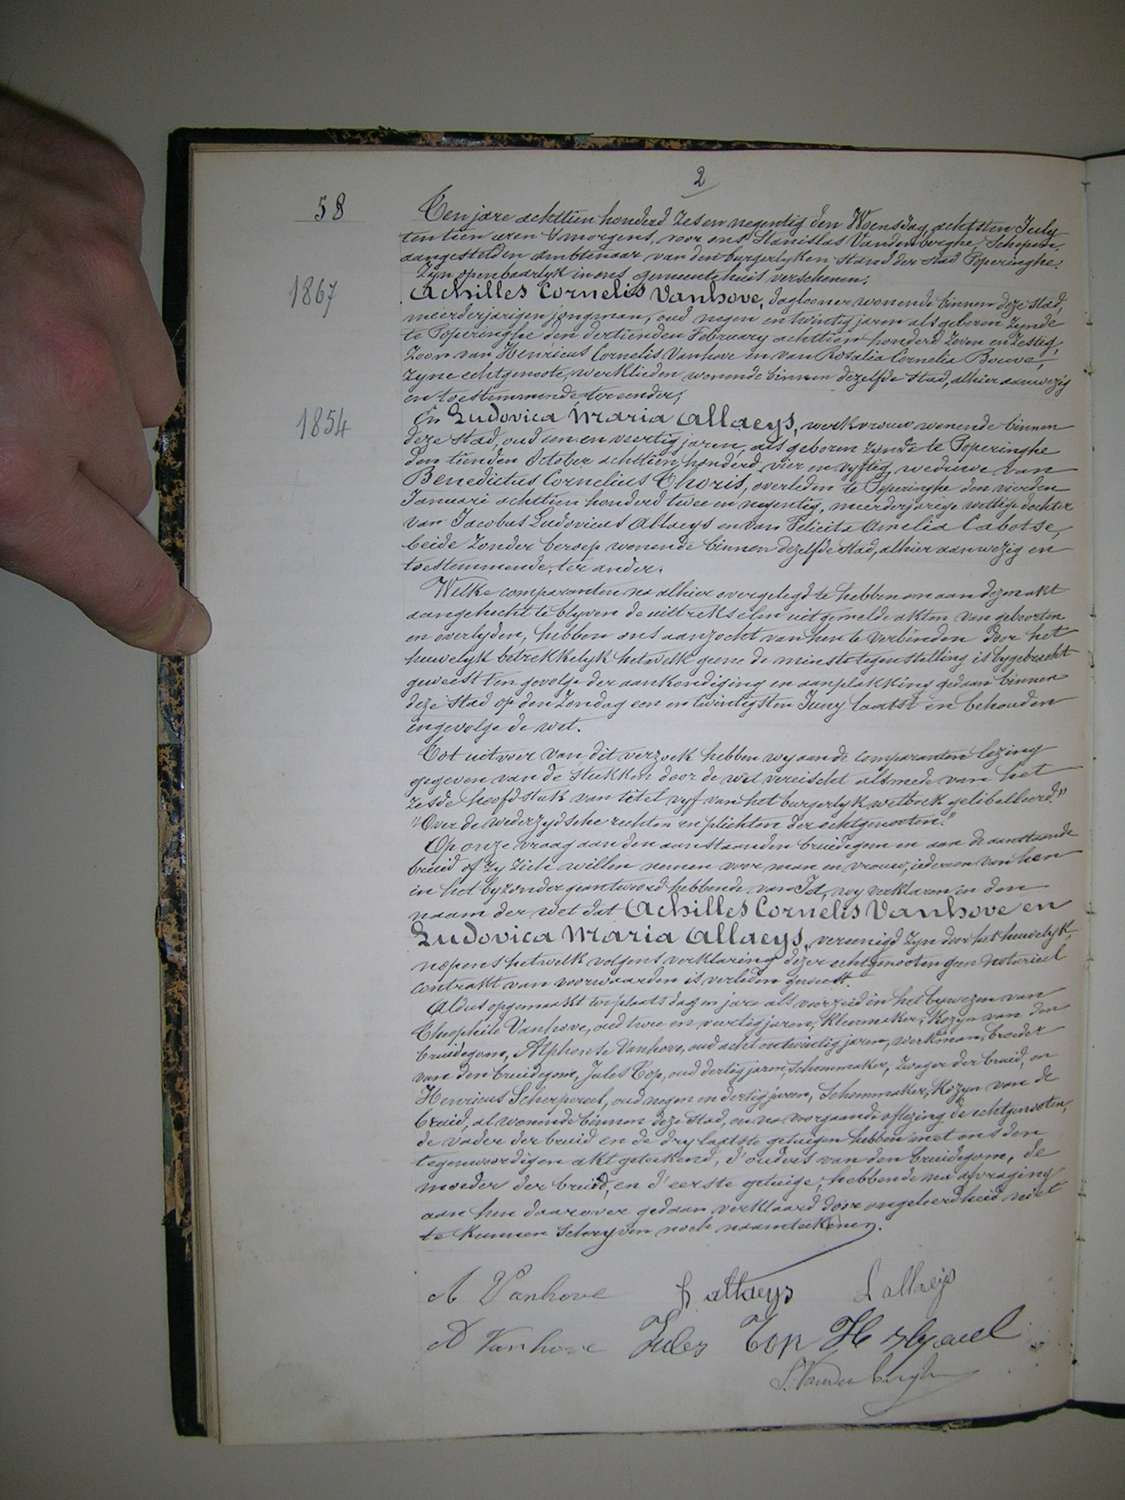 2
58
Ten jare achttien honderd zes en negentig den Woensdag, achtsten July
ten tien uren 's morgens, voor ons Stanislas Vandenberghe, Schepen,
aangestelden ambtenaar van den burgerlyken stand der stad Poperinghe,
Zyn openbaarlyk in ons gemeentehuis verschenen;
1867
Achilles Cornelis Vanhove, daglooner wonende binnen deze stad,
meerderjarigen jongman, oud negen en twintig jaren als geboren zynde
te Poperinghe den dertienden February achttien honderd zeven en zestig,
Zoon van Henricus Cornelis Vanhove en van Rosalia Cornelia Bouve,
zyne echtgenoote, werklieden wonende binnen dezelfde stad, alhier aanwezig
en toestemmende, ter eender,
1854
En Ludovica Maria Allaeys, werkvrouw wonende binnen
deze stad, oud een en veertig jaren, als geboren zynde te Poperinghe
den tienden October achttien honderd vier en vyftig, weduwe van
Benedictus Cornelius Thoris, overleden te Poperinghe den vierden
Januari achttien honderd twee en negentig, meerderjarige wettige dochter
van Jacobus Ludovicus Allaeys en van Felicita Amelia Cabotse,
beide zonder beroep wonende binnen dezelfde stad, alhier aanwezig en
toestemmende, ter ander.
Welke comparanten na alhier overgelegd te hebben om aan dezen akt
aangehecht te blyven de uittrekselen uit gemelde akten van geboorten
en overlyden, hebben ons aanzocht van hen te verbinden door het
huwelyk betrekkelyk hetwelk geene de minste tegenstelling is bygebracht
geweest ten gevolge der aankondiging en aanplakking gedaan binnen
deze stad op den Zondag een en twintigsten Juny laatst en behouden
ingevolge de wet.
Tot uitvoer van dit verzoek hebben wy aan de comparanten lezing
gegeven van de stukken door de wet vereischt alsmede van het
zesde hoofdstuk van titel vyf van het burgerlyk wetboek gelibelleerd
"Over de wederzydsche rechten en plichten der echtgenooten."
Op onze vraag aan den aanstaanden bruidegom en aan de aanstaande
bruid of zy zich willen nemen voor man en vrouw, iedereen van hen
in het byzonder geantwoord hebbende van Ja, wy verklaren in den
naam der wet dat Achilles Cornelis Vanhove en
Ludovica Maria Allaeys, vereenigd zyn door het huwelyk,
nopens hetwelk volgens verklaring dezer echtgenooten geen notarieel
contrakt van voorwaarden is verleden geweest.
Aldus opgemaakt ten plaats dag en jare als voorzeid in het bywezen van
Theophile Vanhove, oud twee en veertig jaren, kleermaker, kozyn van den
bruidegom, Alphonse Vanhove, oud acht en twintig jaren, werkman, broeder
van den bruidegom, Jules Top, oud dertig jaren, Schoenmaker, zwager der bruid, en
Henricus Scherpereel, oud negen en dertig jaren, Schoenmaker, kozyn van de
bruid, al wonende binnen deze stad, en na voorgaande aflezing de echtgenooten,
de vader der bruid en de dry laatste getuigen hebben met ons den
tegenwoordigen akt geteekend, d'ouders van den bruidegom, de
moeder der bruid, en d'eerste getuige, hebbende na afvraging
aan hun daarover gedaan verklaard door ongeleerdheid niet
te kunnen schryven noch naamteekenen.
A Vanhove L allaeys L allaeijs
A Vanhove Jules Top H
S. Vandenberghe